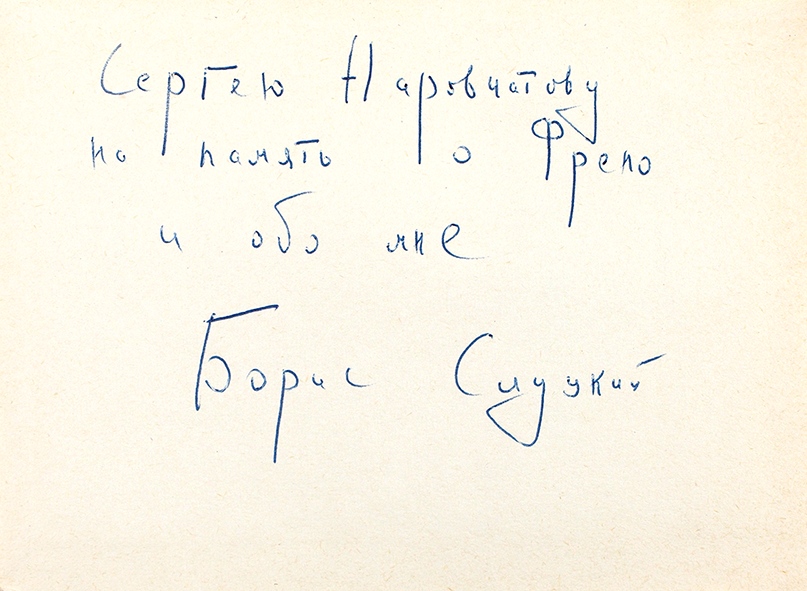 Сергею Наровчатову
на память о Френо
и обо мне
Борис Слуцкий